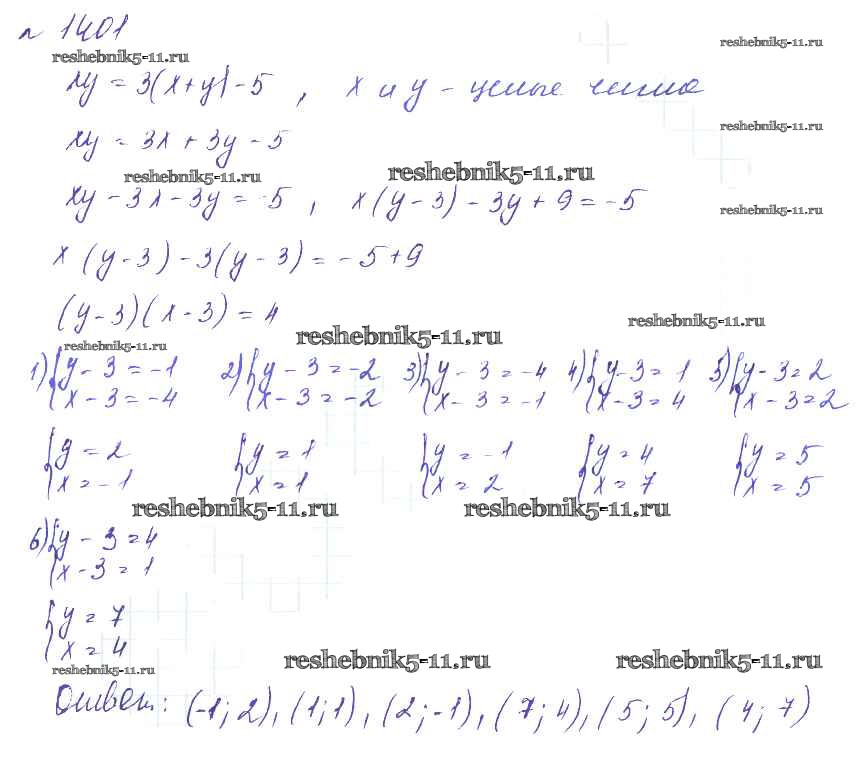 № 1401
reshebnik5-11.ru reshebnik5-11.ru
xy = 3(x+y)-5, x и y - целые числа
xy = 3x + 3y - 5 reshebnik5-11.ru
reshebnik5-11.ru reshebnik5-11.ru
xy - 3x - 3y = -5, x(y-3) - 3y + 9 = -5 reshebnik5-11.ru
x(y-3) - 3(y-3) = -5+9
(y-3)(x-3) = 4
reshebnik5-11.ru reshebnik5-11.ru reshebnik5-11.ru
1) { y - 3 = -1 2) { y - 3 = -2 3) { y - 3 = -4 4) { y - 3 = 1 5) { y - 3 = 2
x - 3 = -4 x - 3 = -2 x - 3 = -1 x - 3 = 4 x - 3 = 2
{ y = 2 { y = 1 { y = -1 { y = 4 { y = 5
x = -1 x = 1 x = 2 x = 7 x = 5
reshebnik5-11.ru reshebnik5-11.ru
6) { y - 3 = 4
x - 3 = 1
{ y = 7
x = 4
reshebnik5-11.ru reshebnik5-11.ru reshebnik5-11.ru
Ответ: (-1; 2), (1; 1), (2; -1), (7; 4), (5; 5), (4; 7)